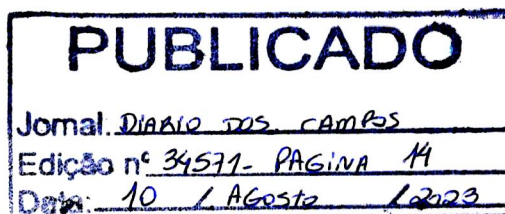 PUBLICADO
Jornal: DIARIO DOS CAMPOS
Edição nº 34571- PAGINA 14
Data: 10 / AGOSTO / 2023